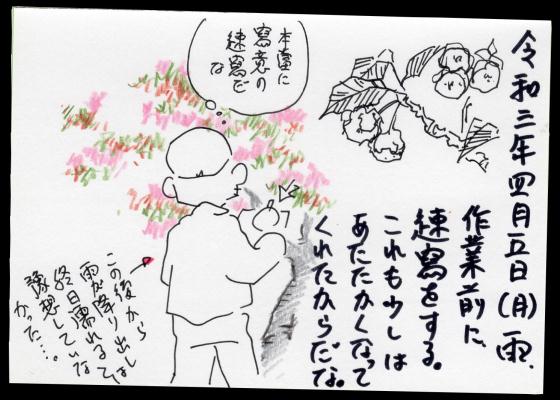 令和三年四月五日（月）雨.
作業前に、
速寫をする。
これも少しは
あたたかくなって
くれたからだな。
本當に
寫意の
速寫だ
な
この後から
雨が降り出し
終日濡れるて
豫想してい
なかった…。